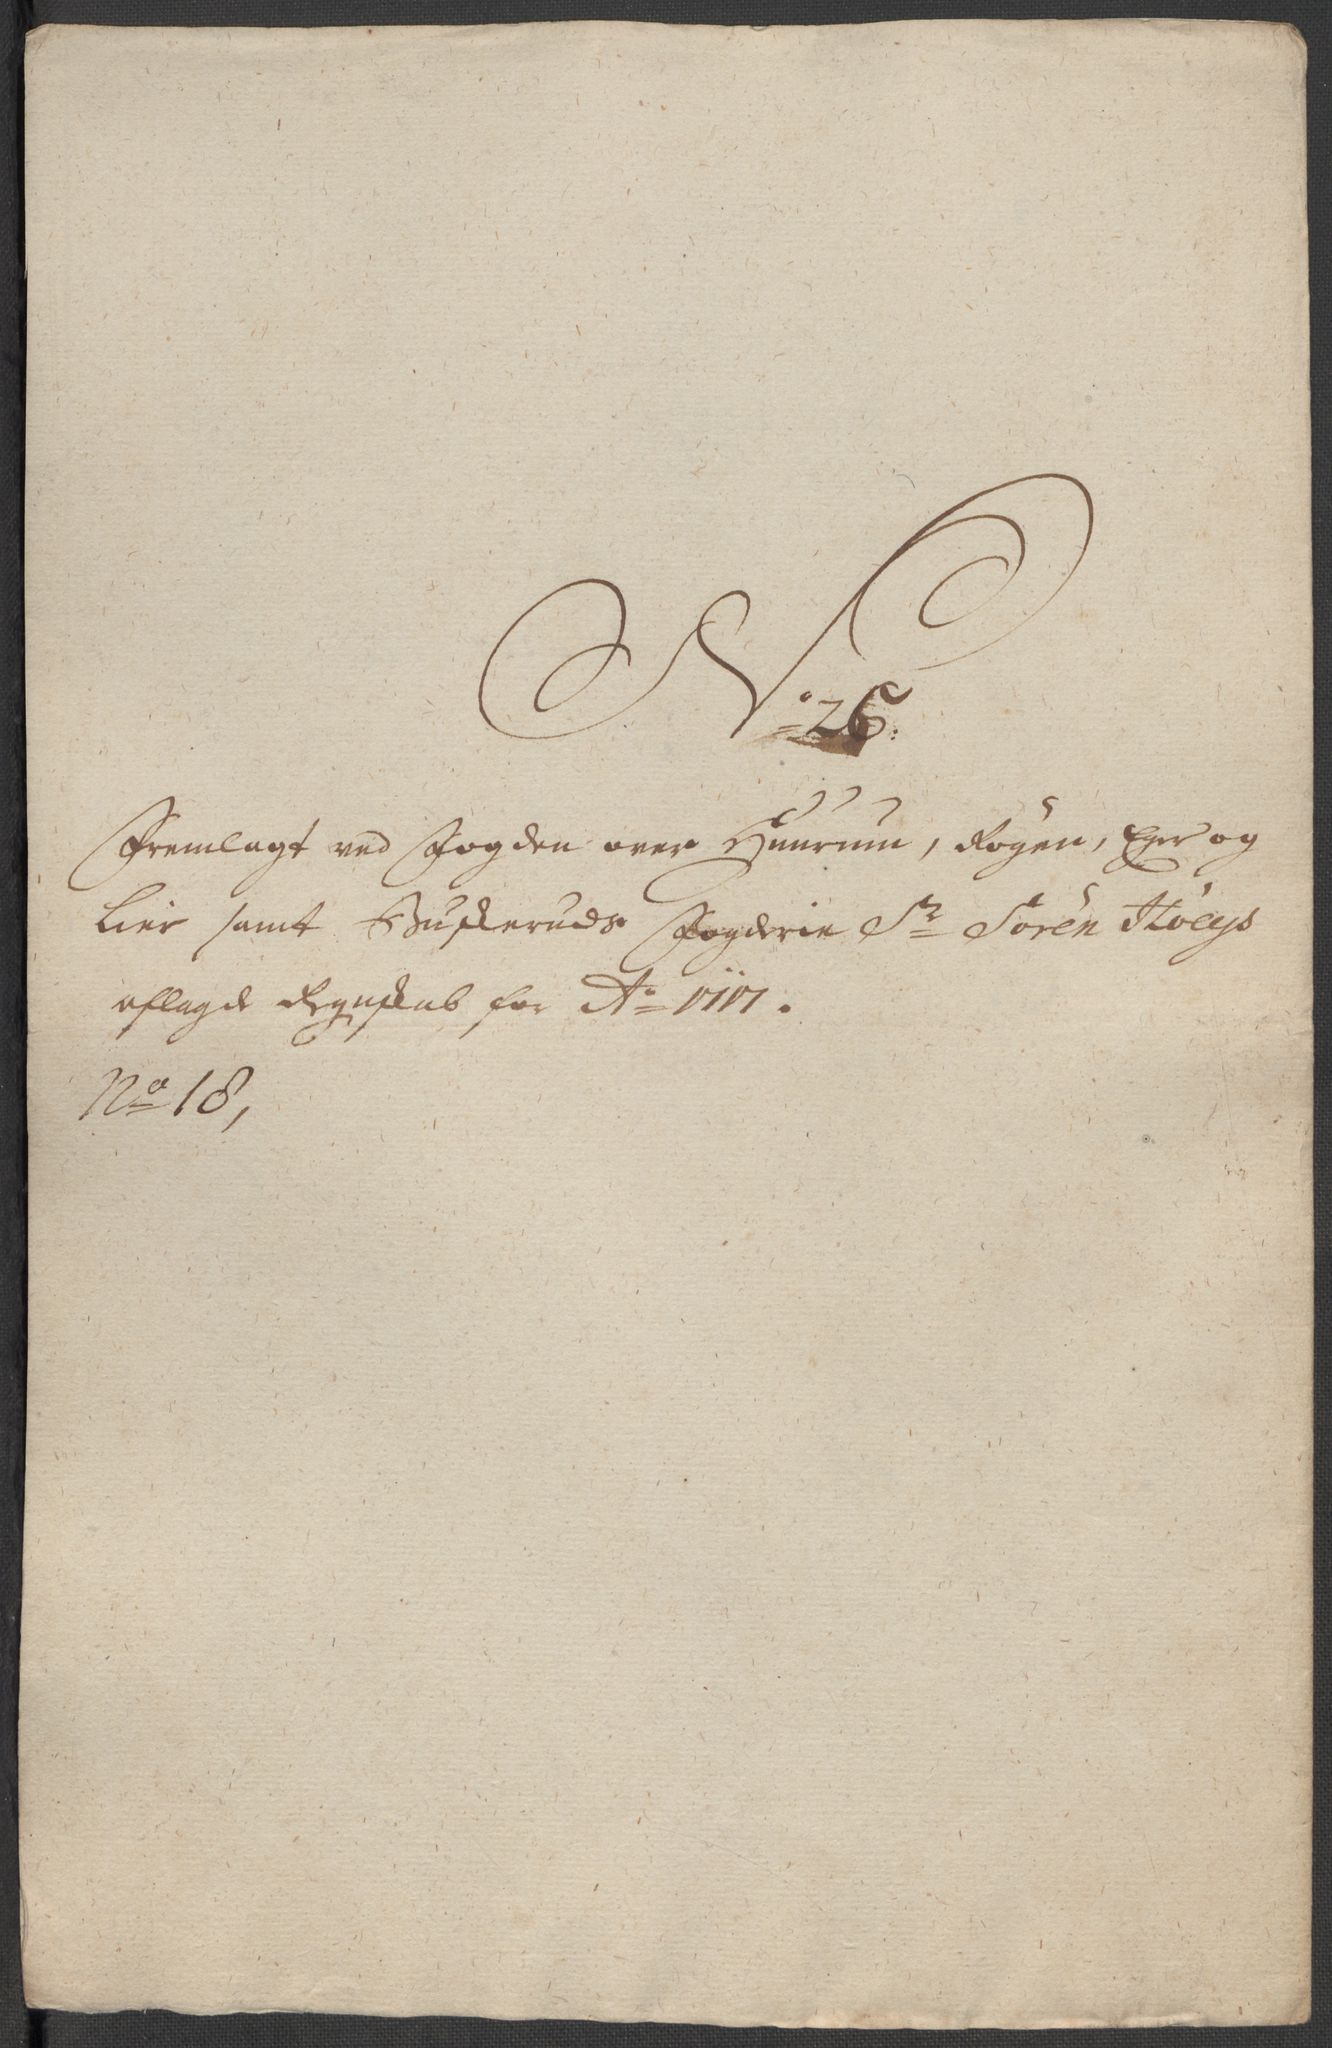 No 26:
Fremlagt ved Fogden over Huurum, Røgen, Eger og
Lier samt Buskeruds Fogderie Sr Søren Høeys
aflagde Regnskab for Ao 1717.
No 18,